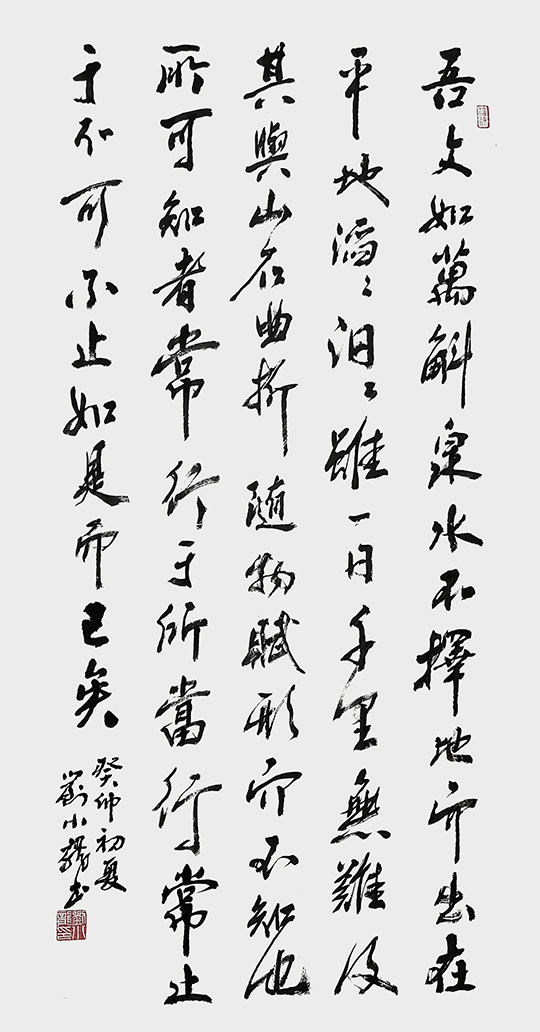 吾文如萬斛泉水不擇地而出在
平地滔〻汩〻雖一日千里無難及
其與山石曲折随物賦形而不知也
所可知者常行于所當行常止
于不可不止如是而已矣
癸卯初夏
劉小龍書